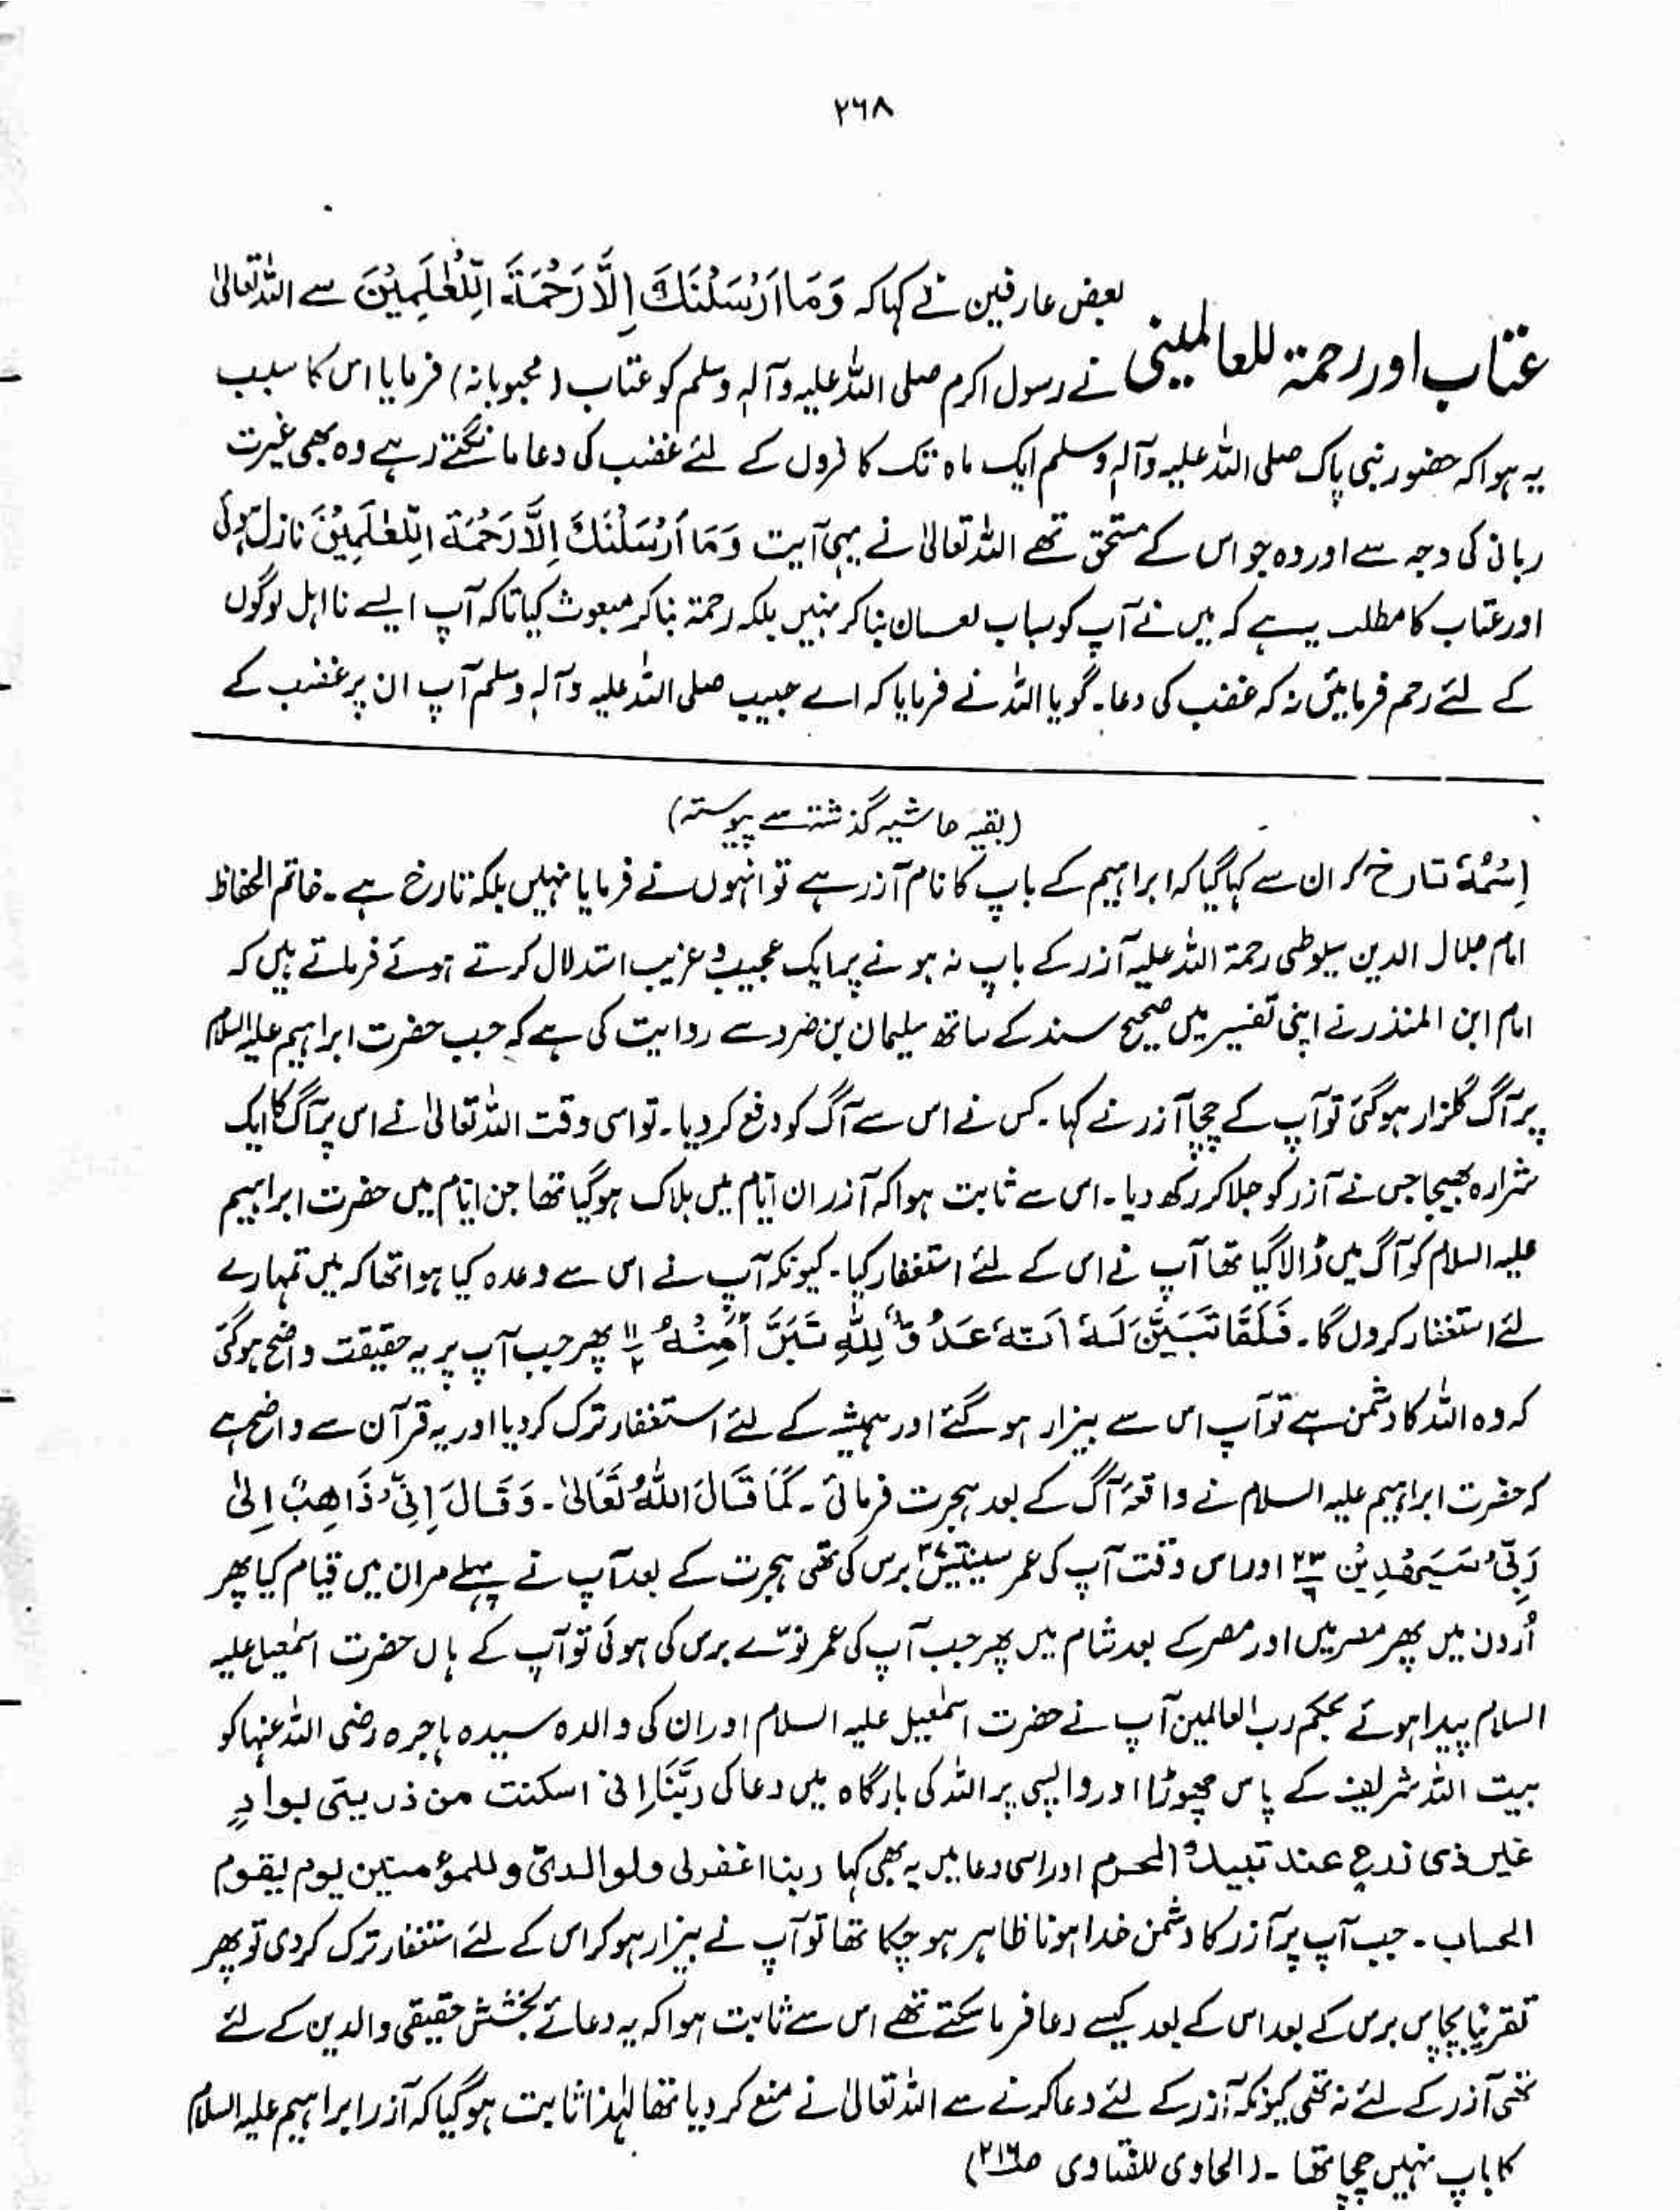 ۲۶۸
بعض عارفین نے کہا کہ وَمَا اَرْسَلْنٰكَ اِلَّا رَحْمَةً لِّلْعٰلَمِيْنَ سے اللہ تعالیٰ
عتاب اور رحمۃ للعالمینی
نے رسول اکرم صلی اللہ علیہ وآلہٖ وسلم کو عتاب (محبوبانہ) فرمایا اس کا سبب
یہ ہوا کہ حضور نبی پاک صلی اللہ علیہ وآلہٖ وسلم ایک ماہ تک کافروں کے لئے غضب کی دعا مانگتے رہے وہ بھی غیرت
ربانی کی وجہ سے اور وہ جو اس کے مستحق تھے اللہ تعالیٰ نے یہی آیت وَمَا اَرْسَلْنٰكَ اِلَّا رَحْمَةً لِّلْعٰلَمِيْنَ نازل ہوئی
اور عتاب کا مطلب یہ ہے کہ میں نے آپ کو سباب لعان بنا کر نہیں بلکہ رحمۃ بنا کر مبعوث کیا تاکہ آپ ایسے نااہل لوگوں
کے لئے رحم فرمائیں نہ کہ غضب کی دعا۔ گویا اللہ نے فرمایا کہ اے حبیب صلی اللہ علیہ وآلہٖ وسلم آپ ان پر غضب کے
(بقیہ حاشیہ گذشتہ سے پیوستہ)
اِسْمُهٗ تارخ کر ان سے کہا گیا کہ ابراہیم کے باپ کا نام آذر ہے تو انہوں نے فرمایا نہیں بلکہ تارخ ہے۔ خاتم الحفاظ
امام جلال الدین سیوطی رحمۃ اللہ علیہ آذر کے باپ نہ ہونے پر ایک عجیب و غریب استدلال کرتے ہوئے فرماتے ہیں کہ
امام ابن المنذر نے اپنی تفسیر میں صحیح سند کے ساتھ سلیمان بن ضرد سے روایت کی ہے کہ جب حضرت ابراہیم علیہ السلام
پر آگ گلزار ہو گئی تو آپ کے چچا آذر نے کہا۔ کس نے اس سے آگ کو دفع کر دیا۔ تو اسی وقت اللہ تعالیٰ نے اس پر آگ کا ایک
شرارہ بھیجا جس نے آذر کو جلا کر رکھ دیا۔ اس سے ثابت ہوا کہ آذر ان ایّام میں ہلاک ہو گیا تھا جن ایّام میں حضرت ابراہیم
علیہ السلام کو آگ میں ڈالا گیا تھا آپ نے اس کے لئے استغفار کیا۔ کیونکہ آپ نے اس سے وعدہ کیا ہوا تھا کہ میں تمہارے
لئے استغفار کروں گا۔ فَلَمَّا تَبَيَّنَ لَهٗ اَنَّهٗ عَدُوٌّ لِلّٰهِ تَبَرَّاَ مِنْهُ ۱۱/۲ پھر جب آپ پر یہ حقیقت واضح ہو گئی
کہ وہ اللہ کا دشمن ہے تو آپ اس سے بیزار ہو گئے اور ہمیشہ کے لئے استغفار ترک کر دیا اور یہ قرآن سے واضح ہے
کہ حضرت ابراہیم علیہ السلام نے واقعۂ آگ کے بعد ہجرت فرمائی۔ كَمَا قَالَ اللّٰهُ تَعَالٰى۔ وَقَالَ اِنِّيْ ذَاهِبٌ اِلٰى
رَبِّيْ سَيَهْدِيْنِ ۲۳ اور اس وقت آپ کی عمر سینتیس ۳۷ برس کی تھی ہجرت کے بعد آپ نے پہلے مران میں قیام کیا پھر
اُردن میں پھر مصر میں اور مصر کے بعد شام میں پھر جب آپ کی عمر نوّے برس کی ہوئی تو آپ کے ہاں حضرت اسمٰعیل علیہ
السلام پیدا ہوئے بحکم رب العالمین آپ نے حضرت اسمٰعیل علیہ السلام اور ان کی والدہ سیدہ ہاجرہ رضی اللہ عنہا کو
بیت اللہ شریف کے پاس چھوڑا اور واپسی پر اللہ کی بارگاہ میں دعا کی رَبَّنَا اِنّی اسکنت من ذریتی بوادٍ
غیر ذی زرع عند بیتک المحرم اور اسی دعا میں یہ بھی کہا ربنا اغفرلی ولوالدیّ وللمؤمنین یوم یقوم
الحساب۔ جب آپ پر آذر کا دشمن خدا ہونا ظاہر ہو چکا تھا تو آپ نے بیزار ہو کر اس کے لئے استغفار ترک کر دی تو پھر
تقریباً پچاس برس کے بعد اس کے بعد کیسے دعا فرما سکتے تھے اس سے ثابت ہوا کہ یہ دعائے بخشش حقیقی والدین کے لئے
تھی آذر کے لئے نہ تھی کیونکہ آذر کے لئے دعا کرنے سے اللہ تعالیٰ نے منع کر دیا تھا لہٰذا ثابت ہو گیا کہ آذر ابراہیم علیہ السلام
کا باپ نہیں چچا تھا۔ (الحاوی للفتاوی ص۲۱۶)